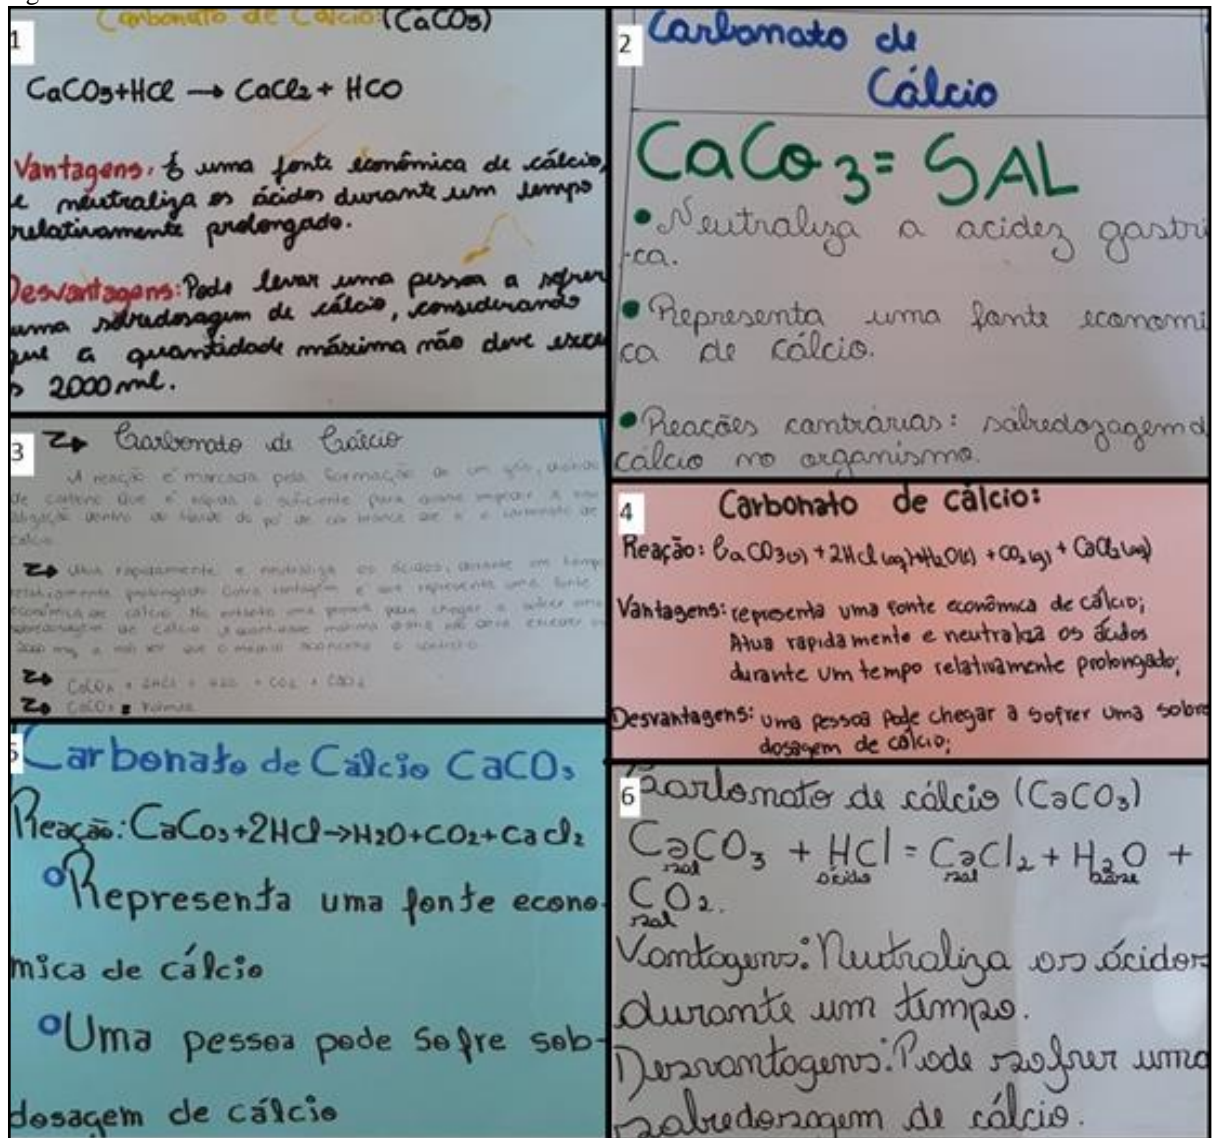 1
Carbonato de Cálcio: (CaCO3)
CaCO3+HCl → CaCl2 + HCO
Vantagens: É uma fonte econômica de cálcio,
e neutraliza os ácidos durante um tempo
relativamente prolongado.
Desvantagens: Pode levar uma pessoa a sofrer
uma sobredosagem de cálcio, considerando
que a quantidade máxima não deve exce
2000 ml.
2
Carbonato de
Cálcio
CaCo3 = SAL
• Neutraliza a acidez gastri
-ca.
• Representa uma fonte economi
ca de cálcio.
• Reações contrárias: sobredozagem d
cálcio no organismo.
3
Carbonato de Cálcio
A reação é marcada pela formação de um gás, dióxido
de carbono que é rápida o suficiente para quase impedir a
dentro do do pó de cor branca que é o carbonato de
cálcio.
Atua rapidamente e neutraliza os ácidos, durante um tempo
relativamente prolongado. Outra vantagem é que representa uma fonte
econômica de cálcio. No entanto uma pessoa pode chegar a sofrer uma
sobredosagem de cálcio. A quantidade máxima diária não deve exceder os
2000 mg, a não ser que o médico aconselhe o contrário.
CaCO3 + 2HCl + H2O + CO2 + CaCl2
CaCO3 =
4
Carbonato de cálcio:
Reação: CaCO3(s) + 2HCl(aq)→H2O(l) + CO2(g) + CaCl2(aq)
Vantagens: representa uma fonte econômica de cálcio;
Atua rapidamente e neutraliza os ácidos
durante um tempo relativamente prolongado;
Desvantagens: uma pessoa pode chegar a sofrer uma sobre
dosagem de cálcio;
5
Carbonato de Cálcio CaCO3
Reação: CaCo3+2HCl→H2O+CO2+Cacl2
Representa uma fonte econo-
mica de cálcio
Uma pessoa pode sofre sob-
dosagem de cálcio
6
Carbonato de cálcio (CaCO3)
CaCO3 + HCl = CaCl2 + H2O +
sal ácido sal base
CO2.
sal
Vantagens: Neutraliza os ácidos
durante um tempo.
Desvantagens: Pode sofrer uma
sobredosagem de cálcio.